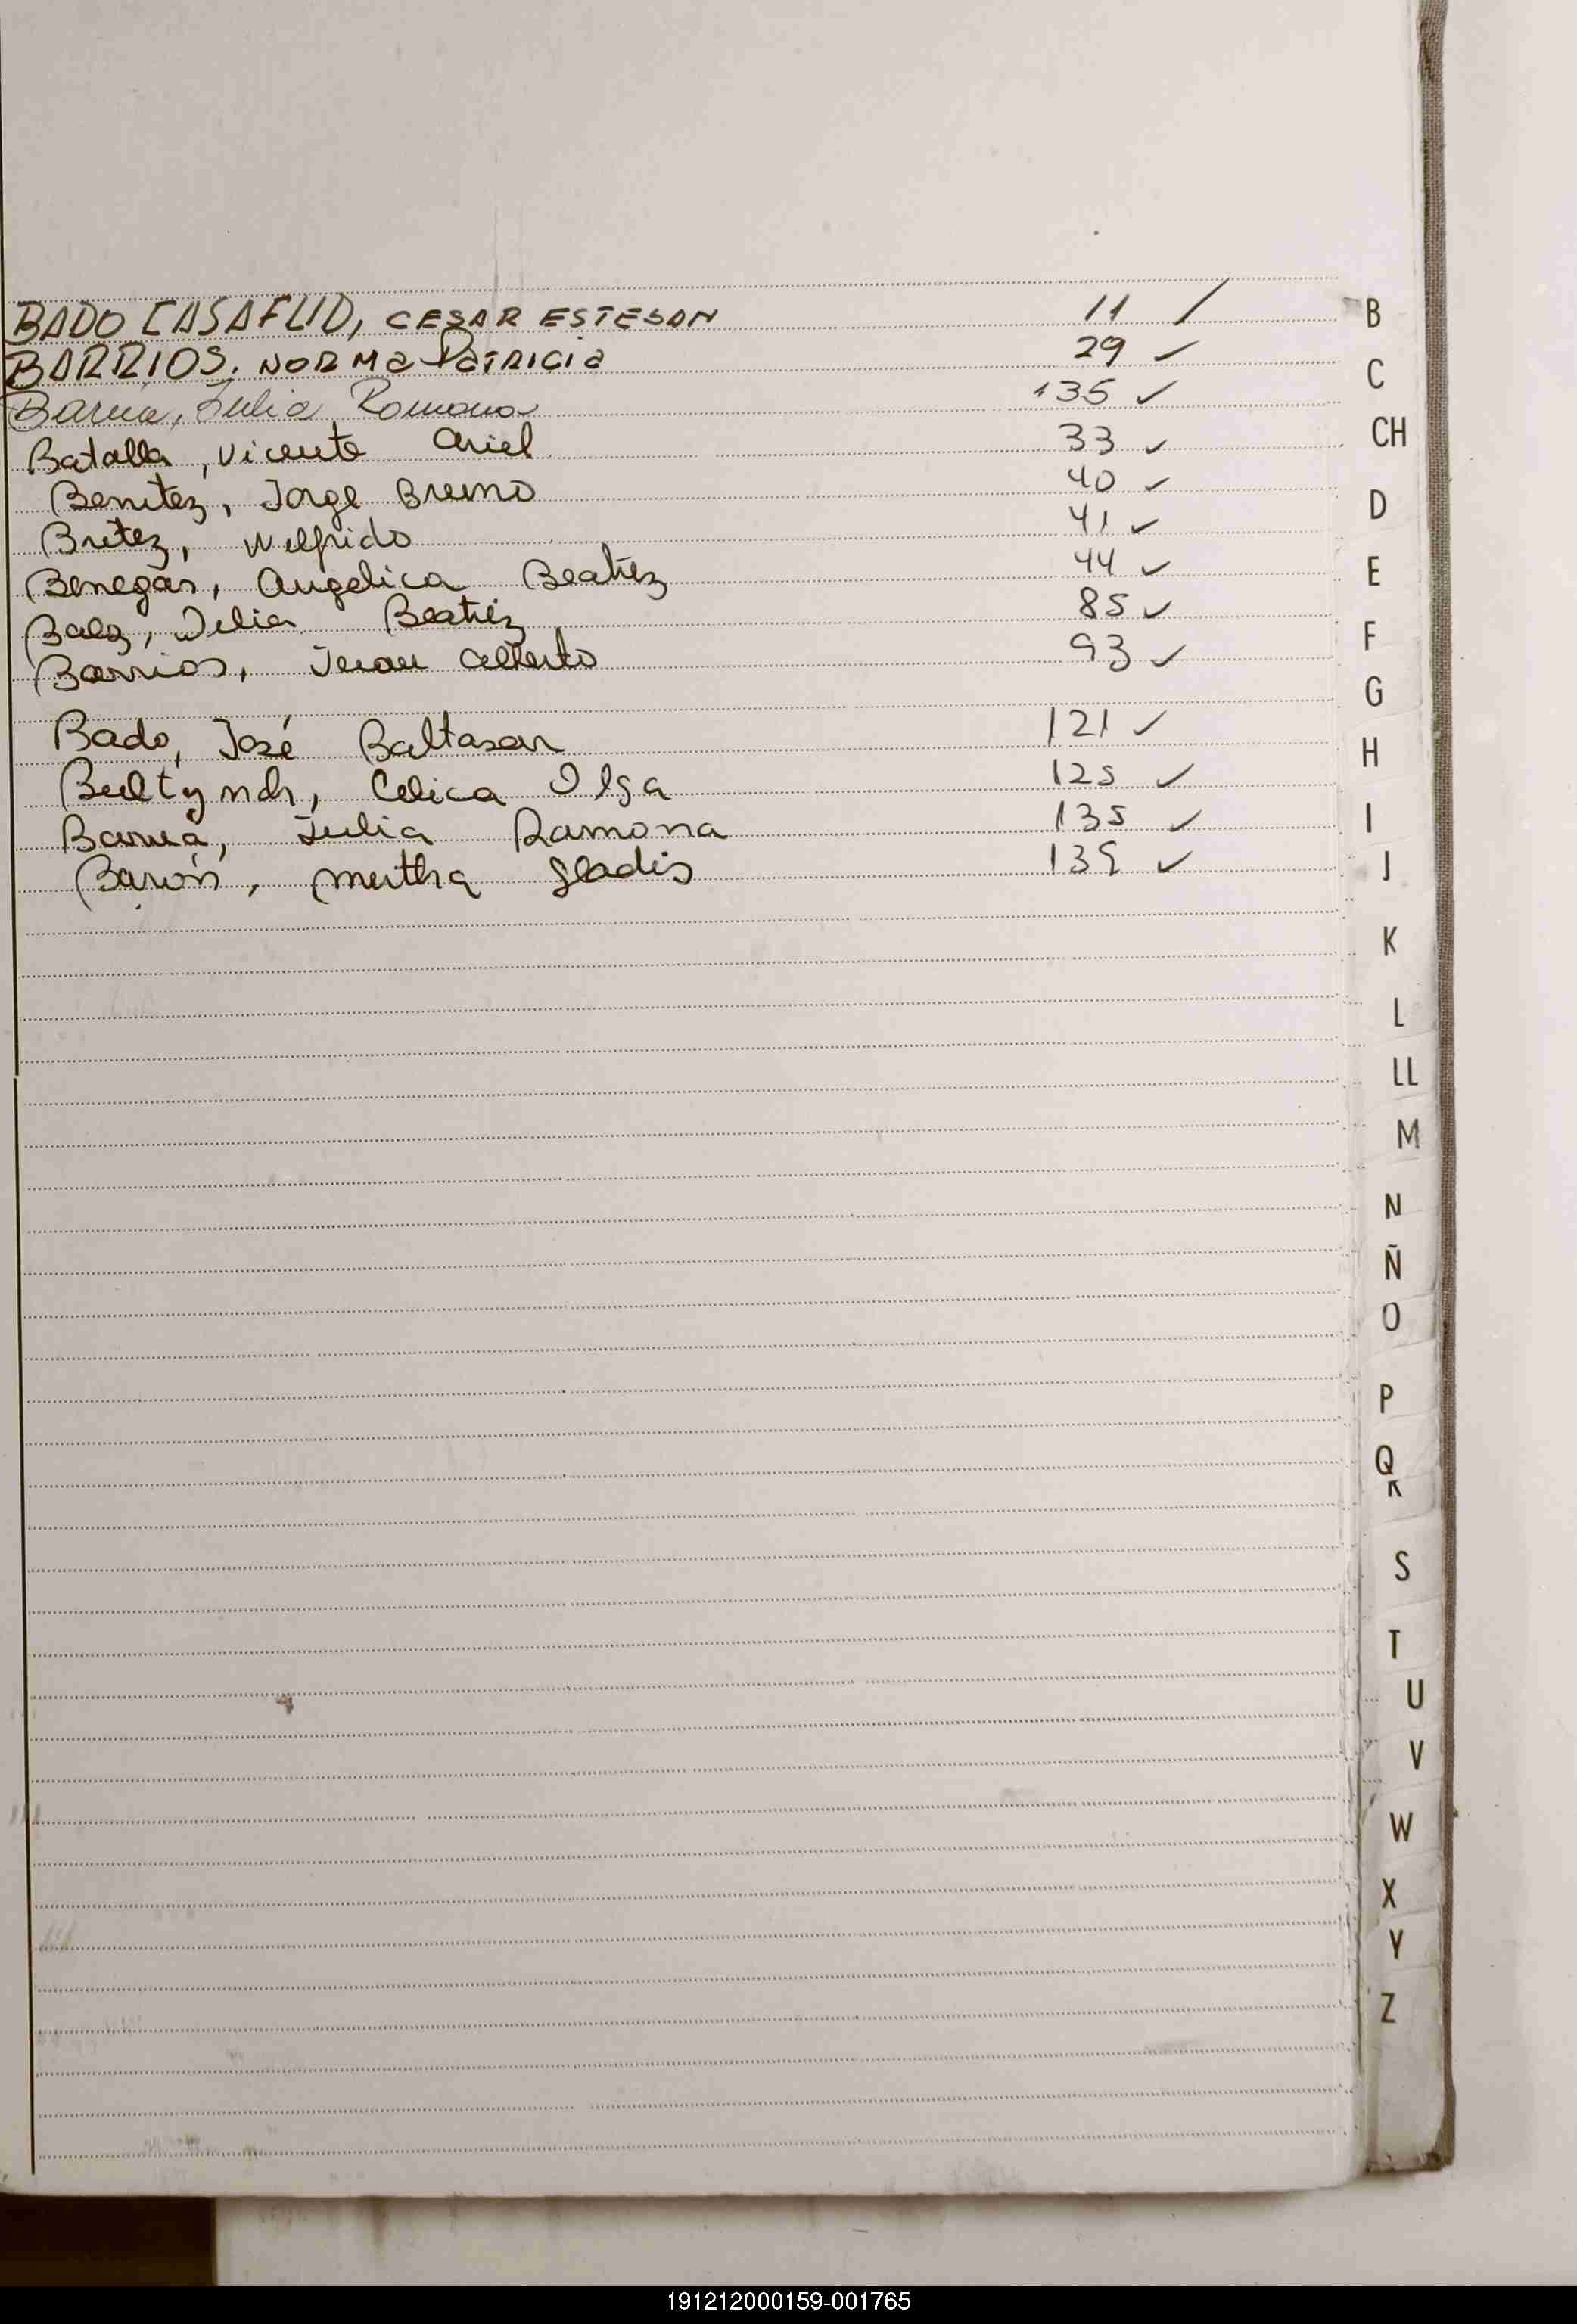 BADO CASAFUD, CESAR ESTEBAN 11 /
BARRIOS, NORMA PATRICIA 29 ✓
Barúa, Julia Romana 135 ✓
Batalla, Vicente Ariel 33 ✓
Benitez, Jorge Bruno 40 ✓
Britez, Wilfrido 41 ✓
Benegas, Angelica Beatriz 44 ✓
Baez, Delia Beatriz 85 ✓
Barrios, Juan Alberto 93 ✓
Bado, José Baltasar 121 ✓
Celica Olga 125 ✓
Barua, Julia Ramona 135 ✓
Barón, Mirtha Gladis 139 ✓
B
C
CH
D
E
F
G
H
I
J
K
L
LL
M
N
Ñ
O
P
Q
R
S
T
U
V
W
X
Y
Z
191212000159-001765